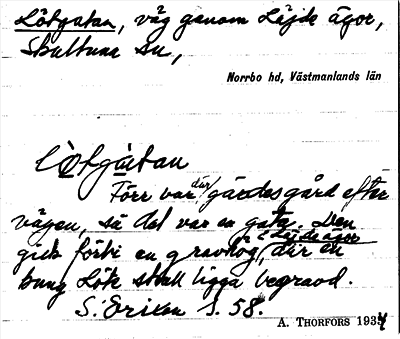 Lötgatan, väg genom Läjde ägor,
Skultuna sn,
Norrbo hd, Västmanlands län
Lötgatan
Förr var där gärdesgård efter
vägen, så det var en gata. Den
gick förbi en gravhög i Läjde ägor, där en
kung Löt skall ligga begravd.
S. Erixon s. 58.
A. THORFORS 1934